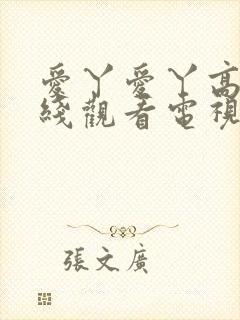 愛丫愛丫高
綫觀看電視
張文廣